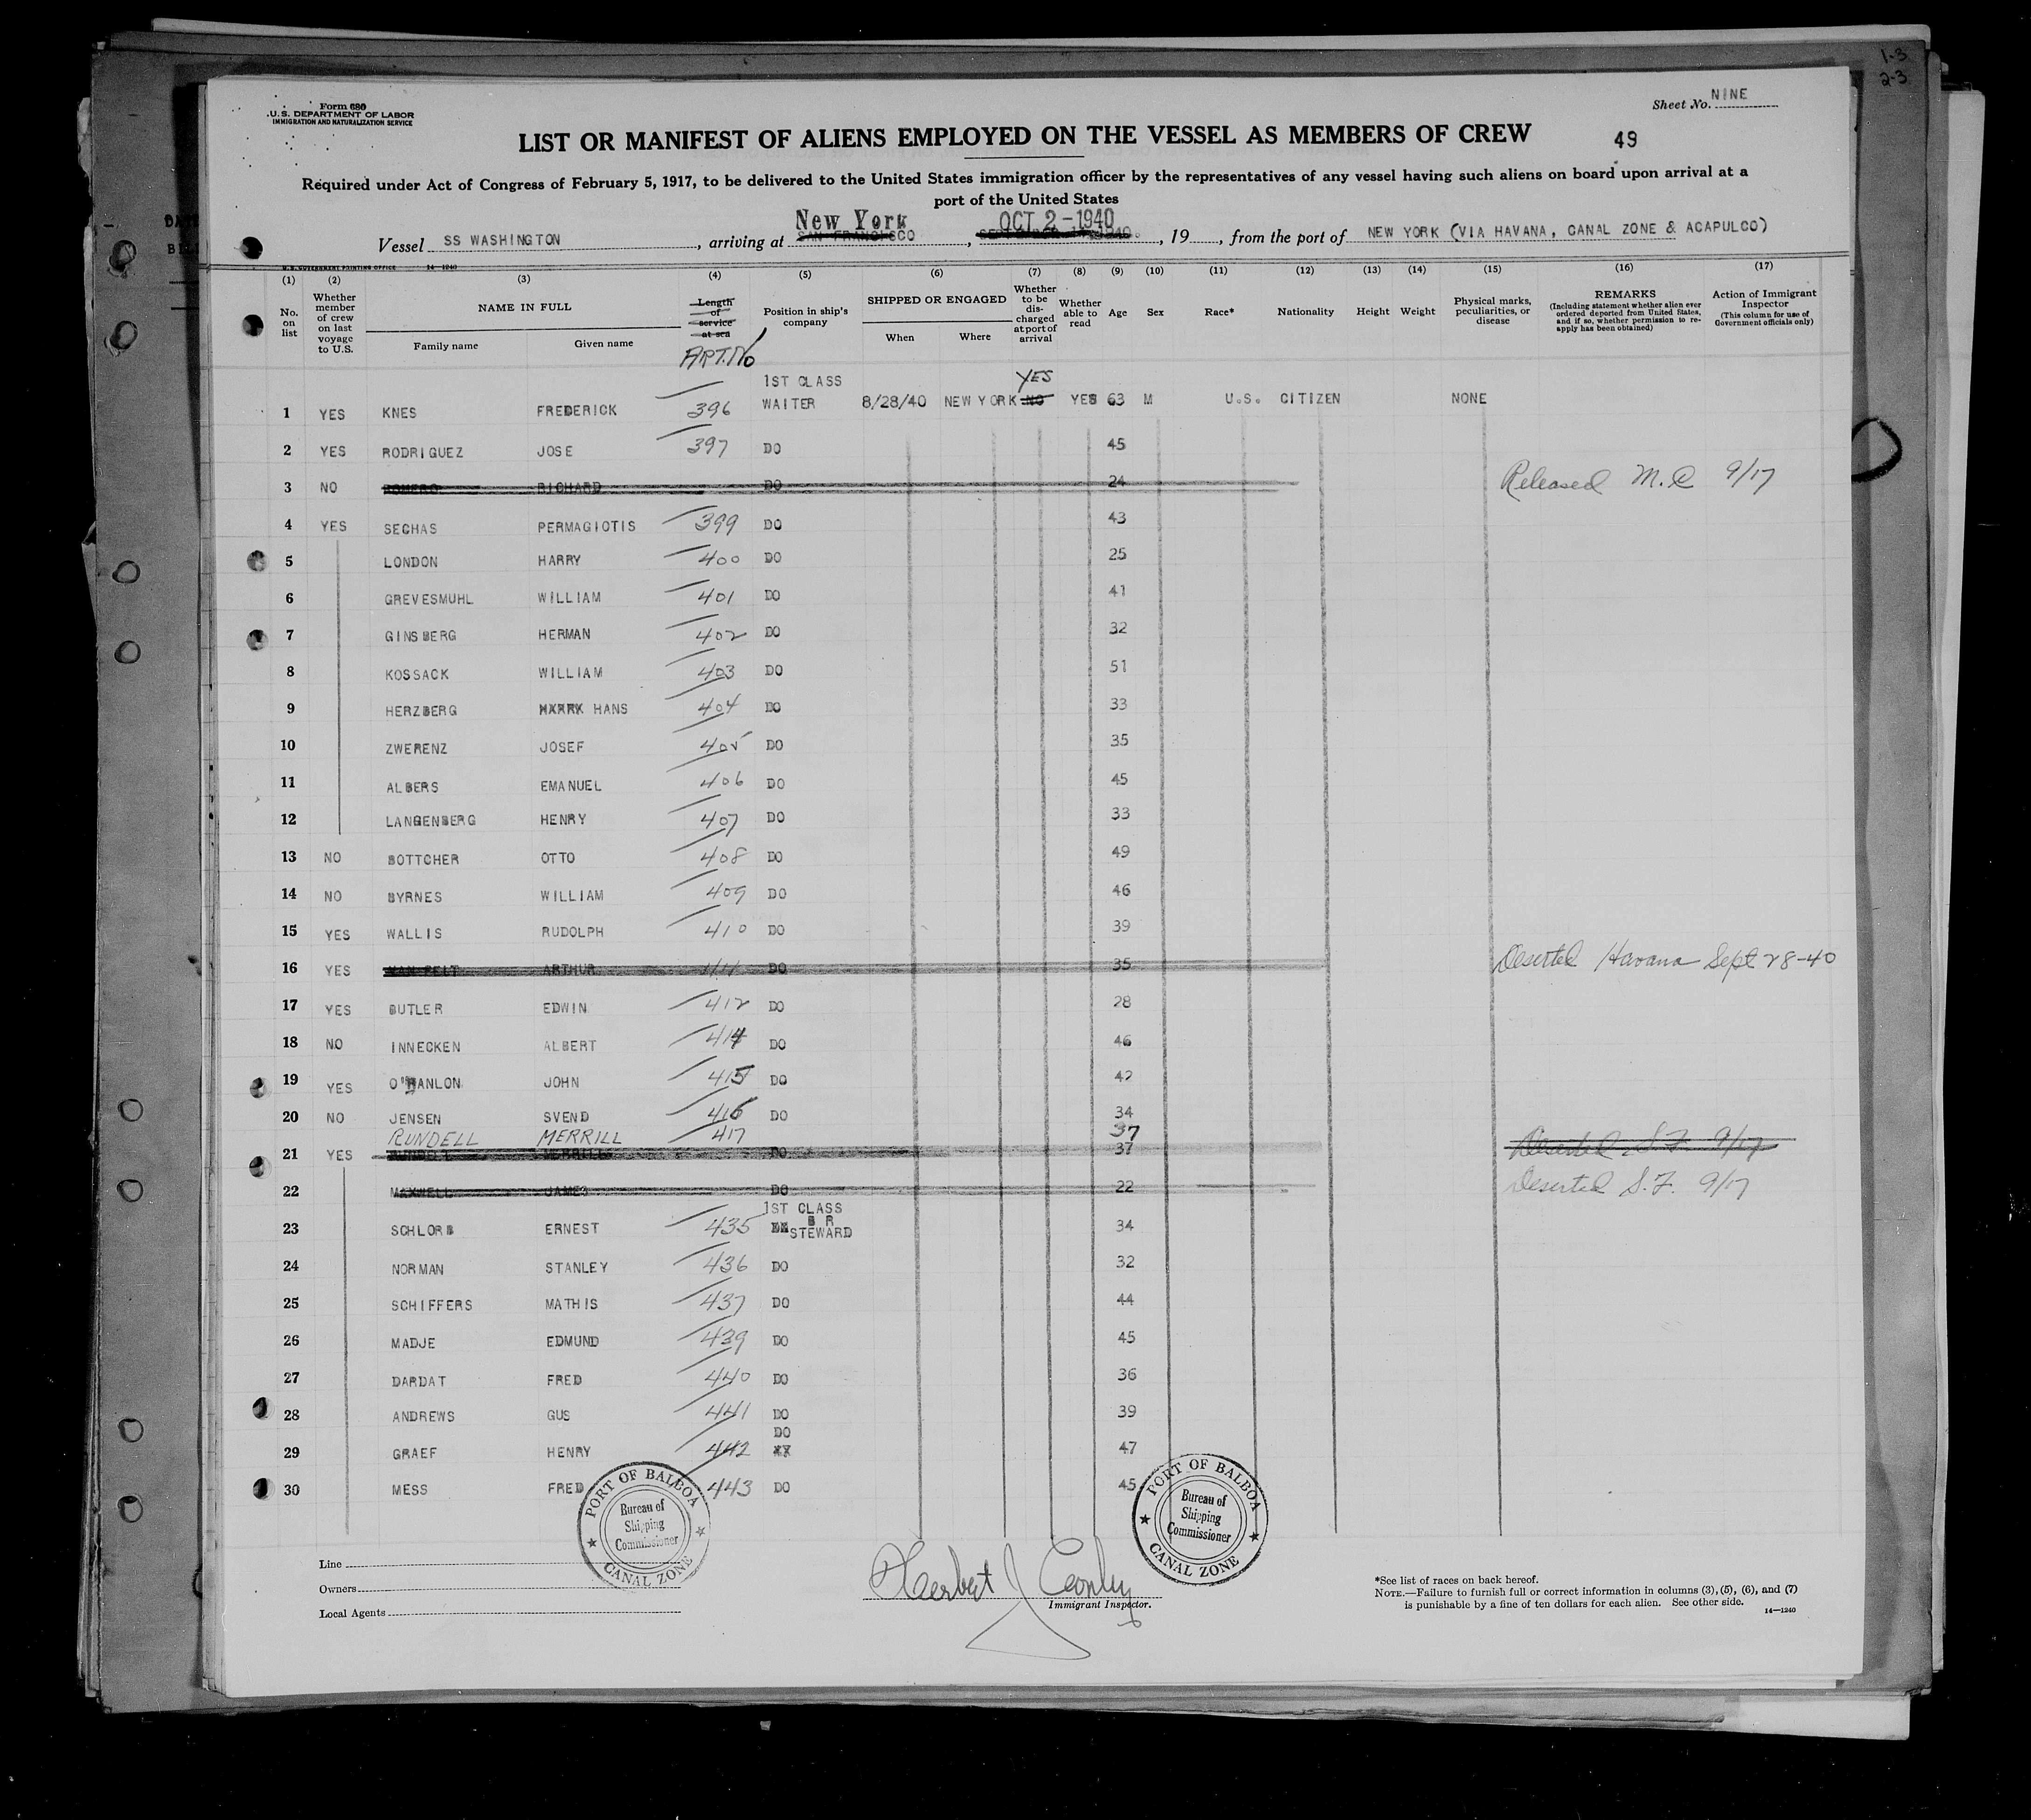 1-3
2-3
Form 680
U.S. DEPARTMENT OF LABOR
IMMIGRATION AND NATURALIZATION SERVICE
Sheet No. NINE
LIST OR MANIFEST OF ALIENS EMPLOYED ON THE VESSEL AS MEMBERS OF CREW
49
Required under Act of Congress of February 5, 1917, to be delivered to the United States immigration officer by the representatives of any vessel having such aliens on board upon arrival at a
port of the United States
New York OCT 2-1940
Vessel SS WASHINGTON, arriving at SAN FRANCISCO, , 19, from the port of NEW YORK (VIA HAVANA, CANAL ZONE & ACAPULCO)
U.S. GOVERNMENT PRINTING OFFICE 14-1240
(1) (2) (3) (4) (5) (6) (7) (8) (9) (10) (11) (12) (13) (14) (15) (16) (17)
No. on list
Whether member of crew on last voyage to U.S.
NAME IN FULL
Family name Given name
Length of service at sea
ART. No
Position in ship's company
SHIPPED OR ENGAGED
When Where
Whether to be discharged at port of arrival
Whether able to read
Age Sex Race* Nationality Height Weight
Physical marks, peculiarities, or disease
REMARKS
(Including statement whether alien ever ordered deported from United States, and if so, whether permission to reapply has been obtained)
Action of Immigrant Inspector
(This column for use of Government officials only)
1ST CLASS YES
1 YES KNES FREDERICK 396 WAITER 8/28/40 NEW YORK NO YES 63 M U.S. CITIZEN NONE
2 YES RODRIGUEZ JOSE 397 DO 45
3 NO ROMERO RICHARD DO 24 Released M.C 9/17
4 YES SECHAS PERMAGIOTIS 399 DO 43
5 LONDON HARRY 400 DO 25
6 GREVESMUHL WILLIAM 401 DO 41
7 GINSBERG HERMAN 402 DO 32
8 KOSSACK WILLIAM 403 DO 51
9 HERZBERG HANS 404 DO 33
10 ZWERENZ JOSEF 405 DO 35
11 ALBERS EMANUEL 406 DO 45
12 LANGENBERG HENRY 407 DO 33
13 NO BOTTCHER OTTO 408 DO 49
14 NO BYRNES WILLIAM 409 DO 46
15 YES WALLIS RUDOLPH 410 DO 39
16 YES VAN PELT ARTHUR 411 DO 35 Deserted Havana Sept 28-40
17 YES BUTLER EDWIN 412 DO 28
18 NO INNECKEN ALBERT 414 DO 46
19 YES O'HANLON JOHN 415 DO 42
20 NO JENSEN SVEND 416 DO 34
RUNDELL MERRILL 417 37
21 YES DO 37 Deserted S.F. 9/17
22 MAXWELL JAMES DO 22 Deserted S.F. 9/17
1ST CLASS
23 SCHLORB ERNEST 435 B R STEWARD 34
24 NORMAN STANLEY 436 DO 32
25 SCHIFFERS MATHIS 437 DO 44
26 MADJE EDMUND 439 DO 45
27 DARDAT FRED 440 DO 36
28 ANDREWS GUS 441 DO 39
29 GRAEF HENRY 442 DO 47
30 MESS FRED 443 DO 45
PORT OF BALBOA
Bureau of
Shipping
Commissioner
CANAL ZONE
PORT OF BALBOA
Bureau of
Shipping
Commissioner
CANAL ZONE
Line
Owners
Local Agents
Herbert J Conley
Immigrant Inspector.
*See list of races on back hereof.
NOTE.—Failure to furnish full or correct information in columns (3), (5), (6), and (7)
is punishable by a fine of ten dollars for each alien. See other side.
14—1240